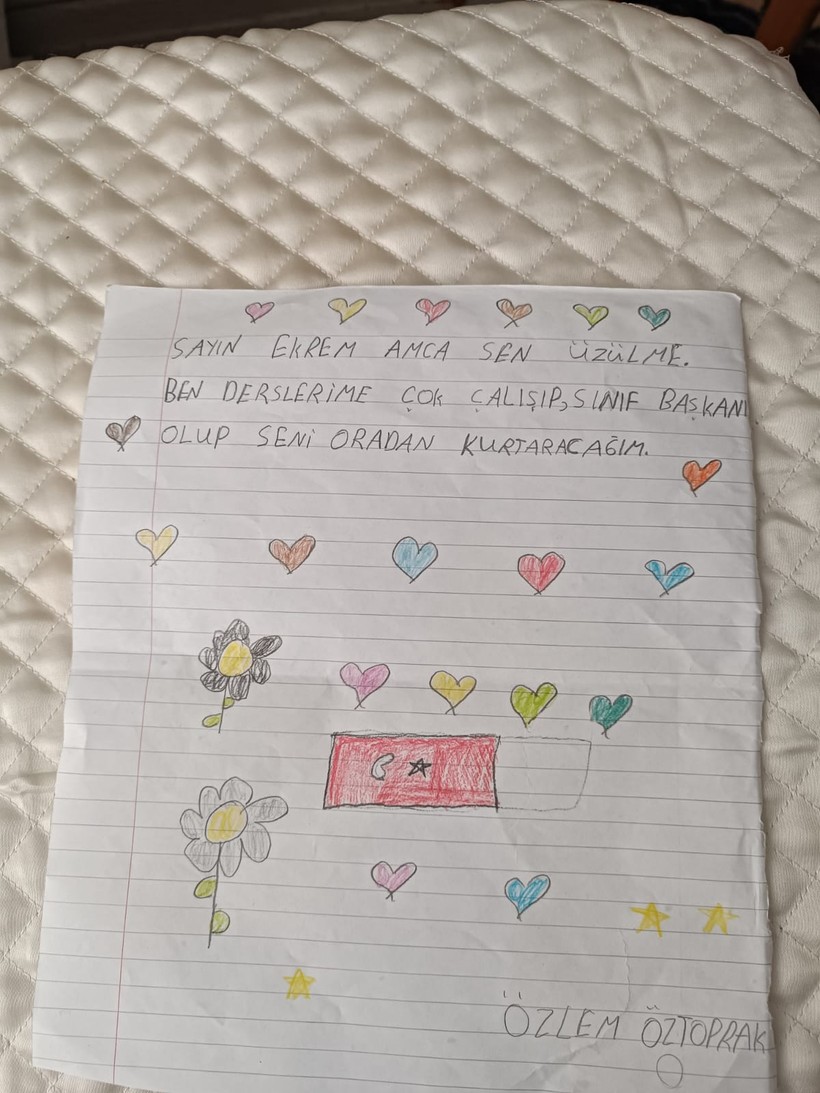 SAYIN EKREM AMCA SEN ÜZÜLME.
BEN DERSLERİME ÇOK ÇALIŞIP, SINIF BAŞKANI
OLUP SENİ ORADAN KURTARACAĞIM.
ÖZLEM ÖZTOPRAK